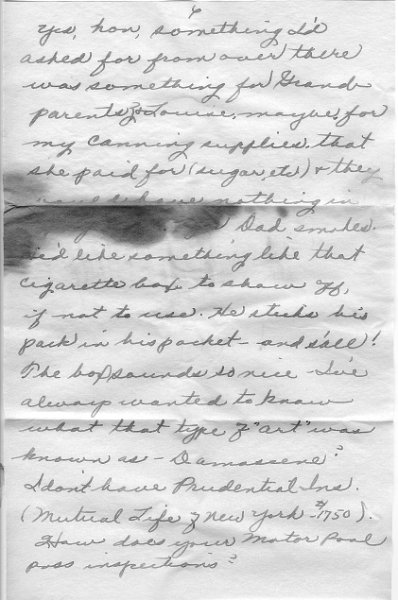 6
Yes, hon, something I'd
asked for from over there
was something for Grand-
parents & Louine, maybe, for
my canning supplies, that
she paid for (sugar, etc) & they
would have nothing in
Dad smokes.
He'd like something like that
cigarette box to show off,
if not to use. He sticks his
pack in his pocket - and s'all!
The box sounds so nice - I've
always wanted to know
what that type of "art" was
known as - Damascene?
I don't have Prudential Ins.
(Mutual Life of New York - $1750).
How does your Motor Pool
pass inspections?